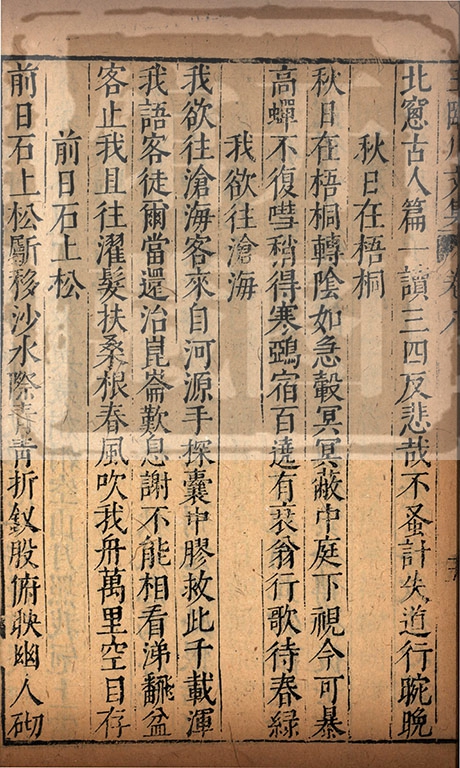 北窻古人篇一讀三四反悲哉不蚤計失道行晼晚
秋日在梧桐
秋日在梧桐轉陰如急轂冥冥蔽中庭下視今可暴
高蟬不復嘒稍得寒鵶宿百遶有衰翁行歌待春緑
我欲往滄海
我欲往滄海客來自河源手探囊中膠救此千載渾
我語客徒爾當還治崑崙歎息謝不能相看涕飜盆
客止我且往濯髮扶桑根春風吹我舟萬里空目存
前日石上松
前日石上松斸移沙水際青青折釵股俯映幽人砌